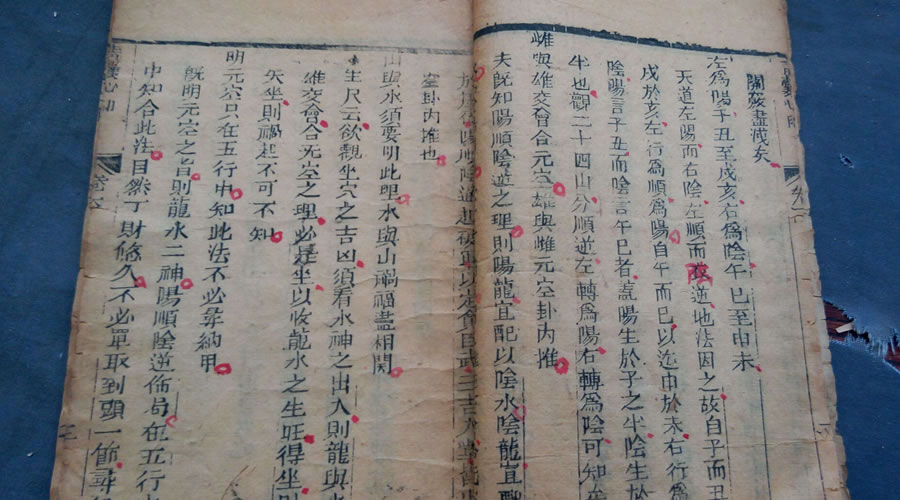 關竅盡洩矣
左為陽子丑至戌亥右為陰午巳至申未
天道左陽而右陰左順而逆地法因之故自子而丑
戌於亥左行為順為陽自午而巳以迄申於未右行為
陰陽言子丑而陰言午巳者葢陽生於子之半陰生於
半也觀二十四山分順逆左轉為陽右轉為陰可知
雌與雄交會合元空雄與雌元空卦內推
夫既知陽順陰逆之理則陽龍宜配以陰水陰龍宜配
陽順陰逆起以定貪巨武三吉
空卦內推也
山與水須要明此理水與山禍福盡相關
生尺云欲觀坐穴之吉凶須看水神之出入則龍與
雄交會合无空之理必是坐以收龍水之生旺得坐則
失坐則禍起不可不知
明元空只在五行中知此法不必彙納甲
既明元空之旨則龍水二神陽順陰逆佈局在五行
中知合此法自然丁財悠久不必單取到頭一節尋